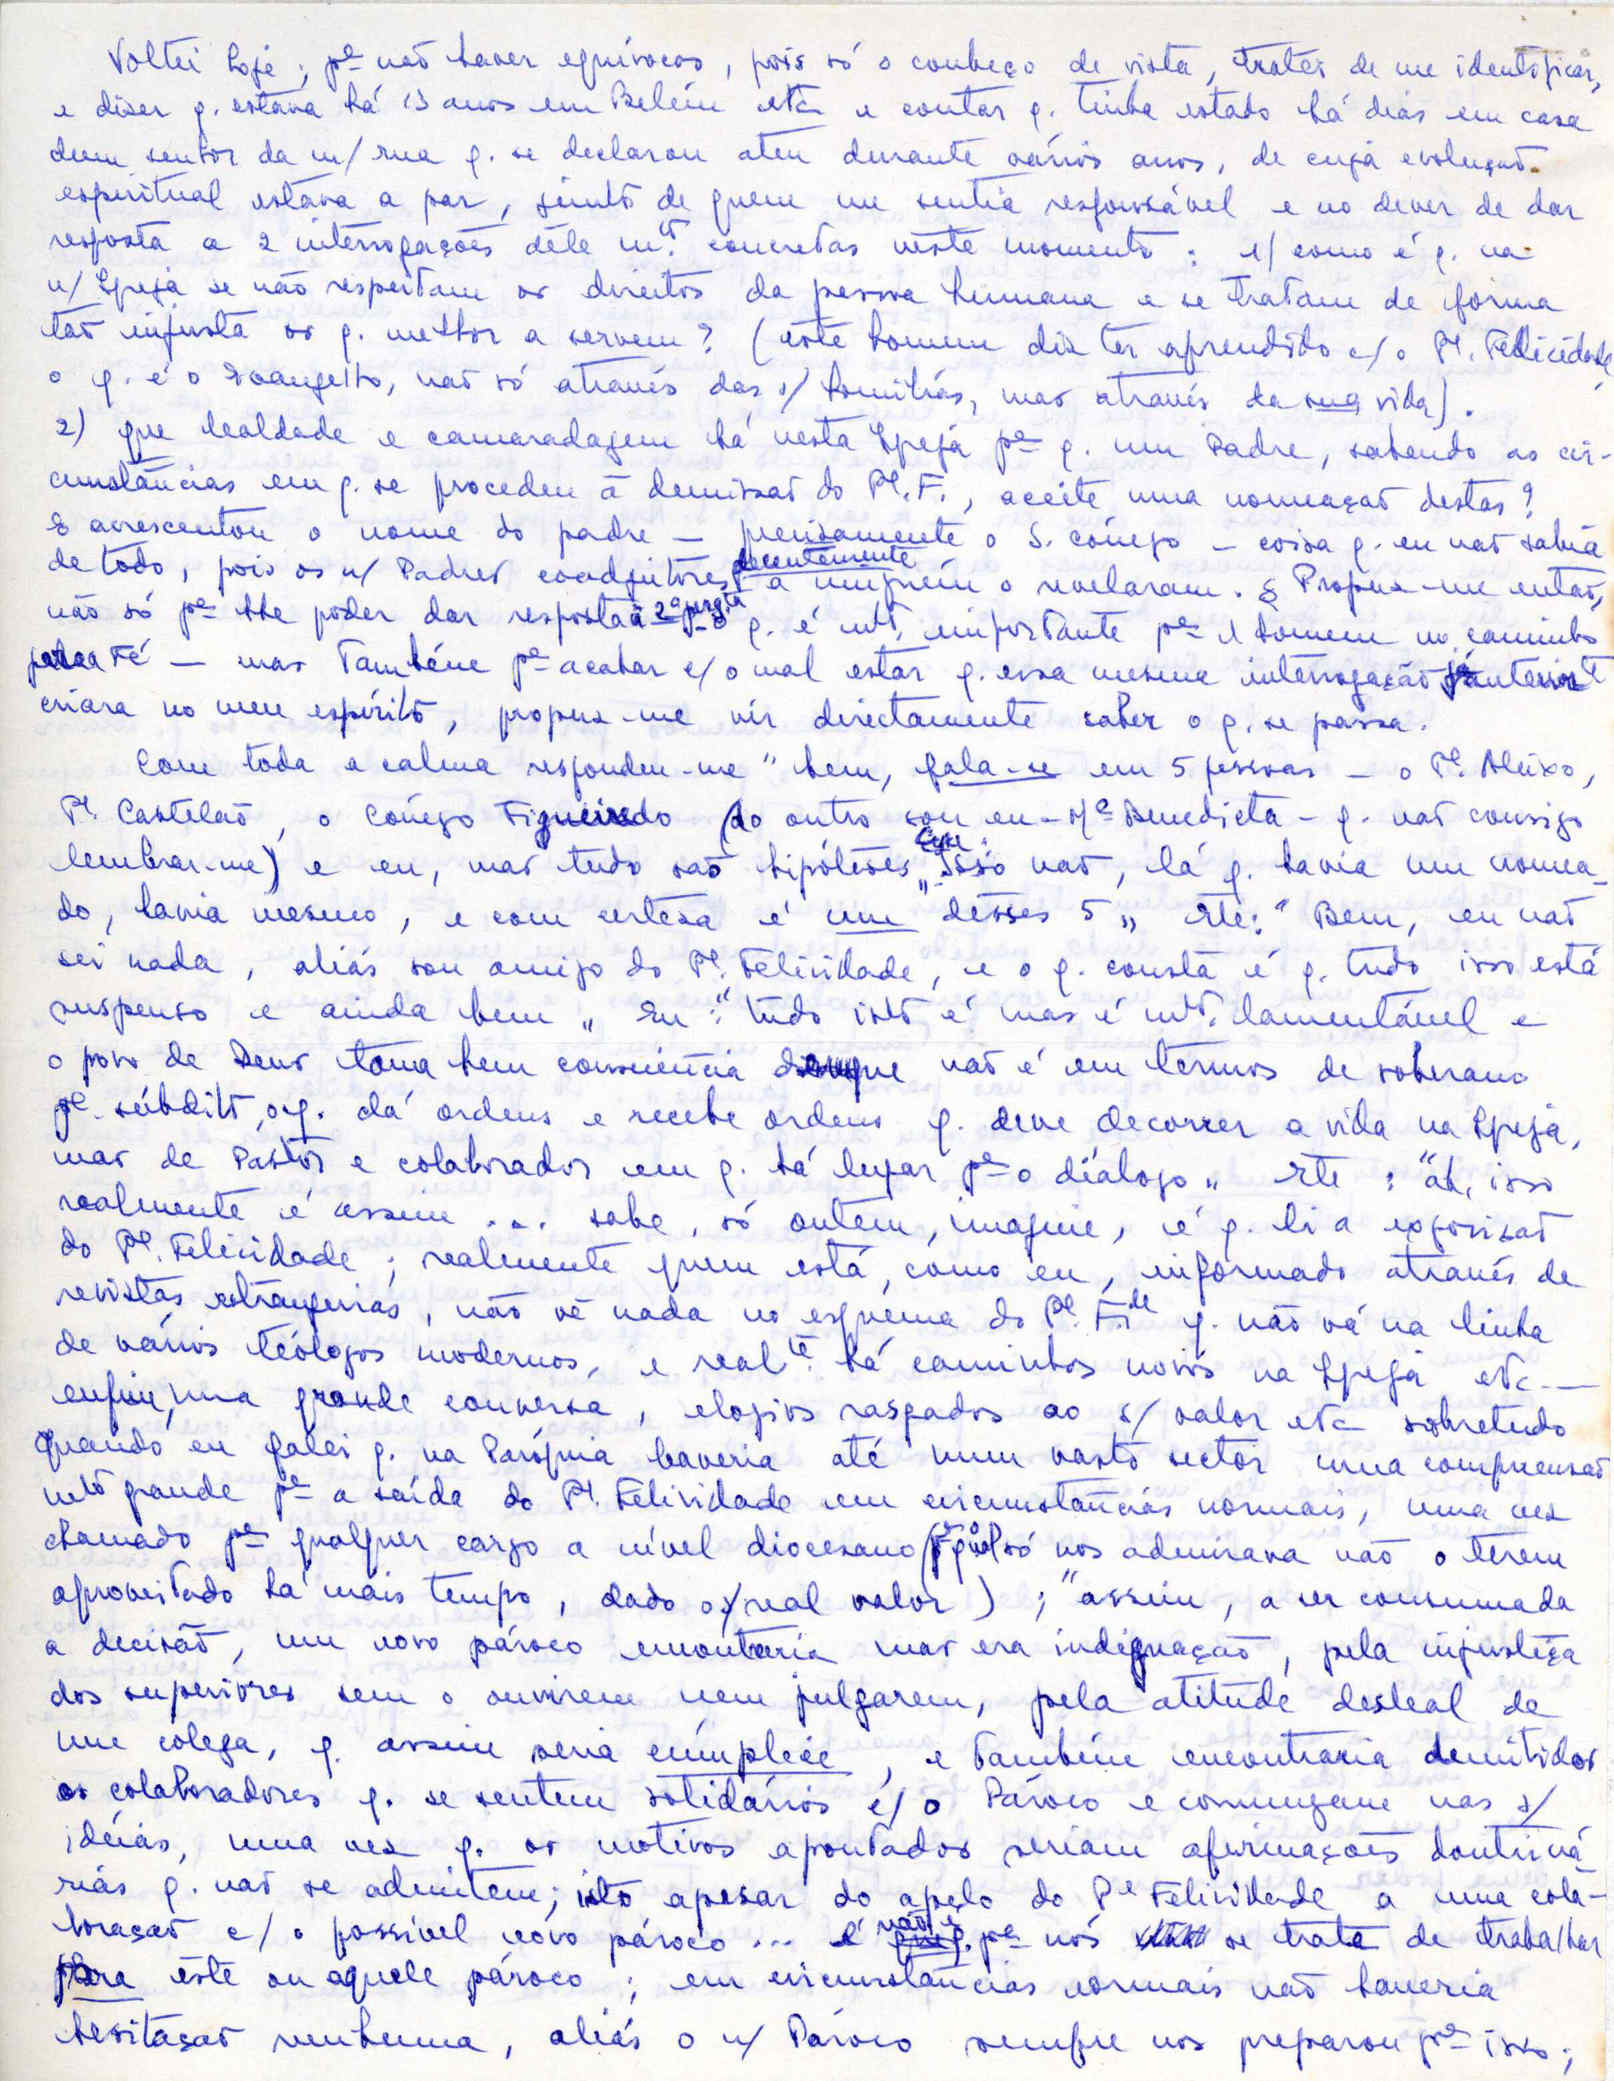 Voltei hoje; pª não haver equívocos, pois só o conheço de vista, tratei de me identificar,
e dizer q. estava há 13 anos em Belém etc e contar q. tinha estado há dias em casa
dum senhor da m/ rua q. se declarou ateu durante vários anos, de cuja evolução
espiritual estava a par, junto de quem me sentia responsável e no dever de dar
resposta a 2 interrogações dêle mtº concretas nêste momento: 1/ como é q. na
n/ Igreja se não respeitam os direitos da pessoa humana e se tratam de forma
tão injusta os q. melhor a servem? (êste homem diz ter aprendido c/ o Pe. Felicidade
o q. é o Evangelho, não só através das s/ homilias, mas através da sua vida).
2) que lealdade e camaradagem há nesta Igreja pª q. um Padre, sabendo as cir-
cunstâncias em q. se procedeu à demissão do Pe. F., aceite uma nomeação destas?
E acrescentou o nome do padre — precisamente o S. Cónego — coisa q. eu não sabia
de todo, pois os n/ Padres coadjutores decentemente a ninguém o revelaram. § Propuz-me então,
não só pª lhe poder dar resposta à 2ª pergtª q. é mtº importante pª 1 homem no caminho
pela Fé — mas também pª acabar c/ o mal estar q. essa mesma interrogação já anteriorte
criara no meu espírito, propuz-me vir directamente saber o q. se passa.
Com toda a calma respondeu-me "bem, fala-se em 5 pessoas — o Pe. Aleixo,
Pe. Castelão, o Cónego Figueiredo (do outro sou eu - Mª Benedicta - q. não consigo
lembrar-me) e eu, mas tudo são hipóteses" Eu: "Isso não, lá q. havia um nomea-
do, havia mesmo, e com certeza é um dêsses 5" Ele: "Bem, eu não
sei nada, aliás sou amigo do Pe. Felicidade, e o q. consta é q. tudo isso está
suspenso e ainda bem" Eu: "tudo isto é mas é mtº. lamentável e
o povo de Deus toma bem consciência de que não é em têrmos de soberano
pª súbdito, o q. dá ordens e recebe ordens q. deve decorrer a vida na Igreja,
mas de Pastor e colaborador em q. há lugar pª o diálogo" Ele: "ah, isso
realmente é assim ... sabe, só ontem, imagine, é q. li a exposição
do Pe. Felicidade; realmente quem está, como eu, informado através de
revistas estrangeiras, não vê nada no esquema do Pe. F.de q. não vá na linha
de vários teólogos modernos, e realte. há caminhos novos na Igreja etc. —
enfim, uma grande conversa, elogios rasgados ao s/ valor etc sobretudo
quando eu falei q. na Paróquia haveria até num vasto sector uma compreensão
mtº grande pª a saída do Pe. Felicidade em circunstâncias normais, uma vez
chamado pª qualquer cargo a nível diocesano (pº qual só nos admirava não o terem
aproveitado há mais tempo, dado o s/ real valor); "assim, a ser consumada
a decisão, um novo pároco encontraria mas era indignação, pela injustiça
dos superiores sem o ouvirem nem julgarem, pela atitude desleal de
um colega, q. assim seria cúmplice, e também encontraria demitidos
os colaboradores q. se sentem solidários c/ o Pároco e comungam nas s/
idéias, uma vez q. os motivos apontados seriam afirmações doutriná-
rias q. não se admitem; isto apesar do apelo do Pe Felicidade a uma cola-
boração c/ o possível novo pároco ... é não q. pª nós se trata de trabalhar
para êste ou aquele pároco; em circunstâncias normais não haveria
hesitação nenhuma, aliás o n/ Pároco sempre nos preparou pª isso;